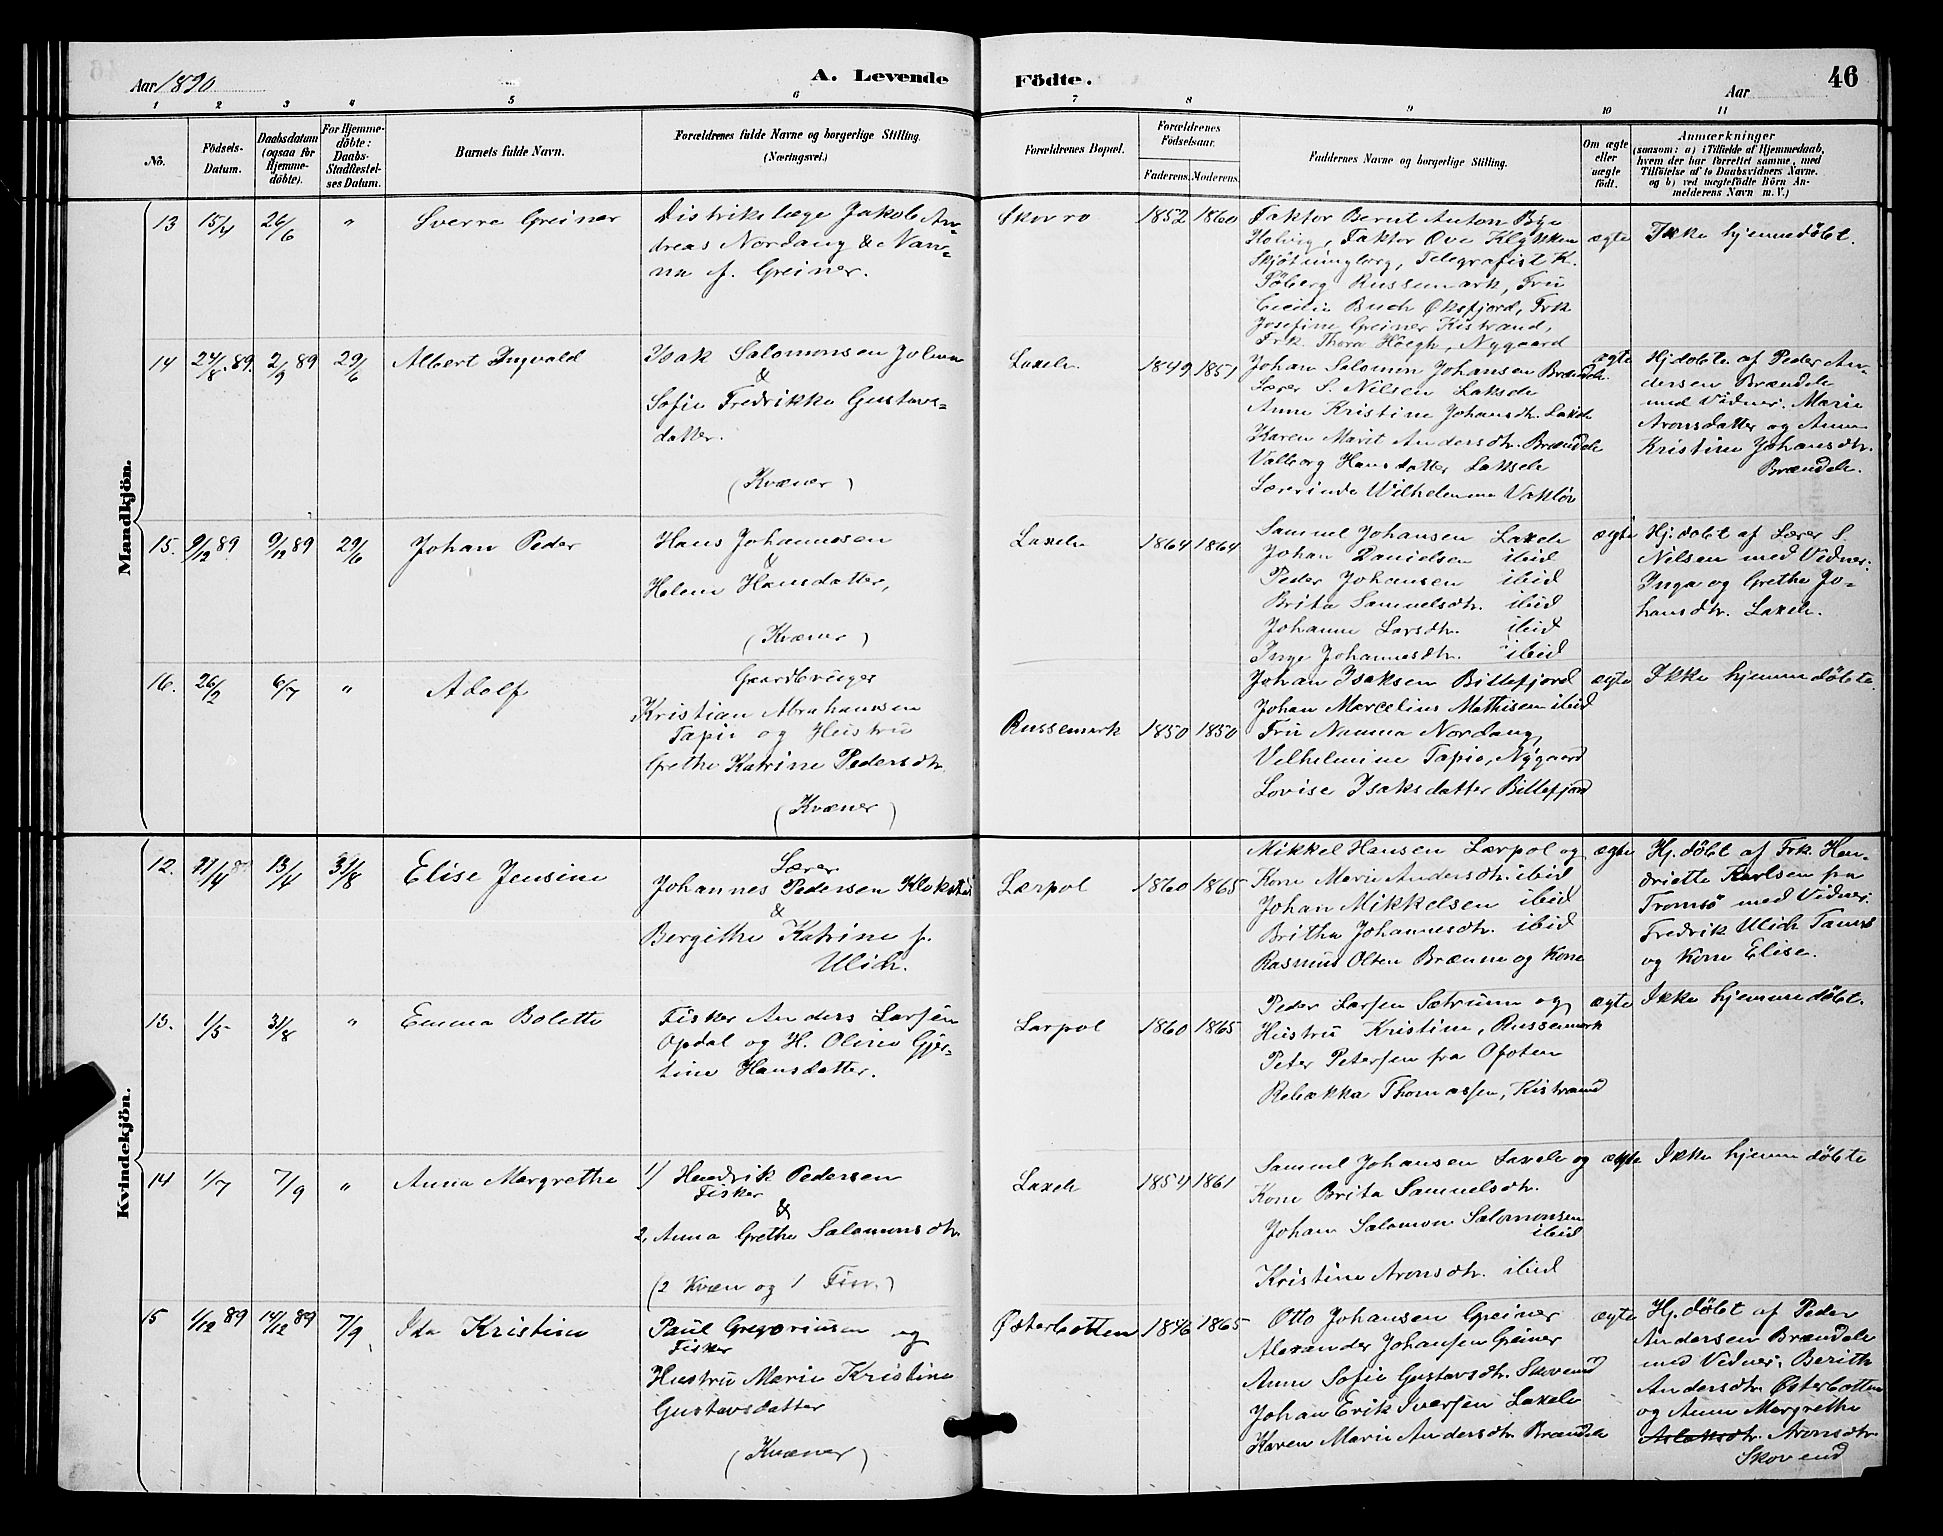 Aar 1890
A. Levende
Födte.
Aar
46
1 2 3 4 5 6 7 8 9 10 11
No.
Födsels-
Datum.
Daabsdatum
(ogsaa for
Hjemme-
döbte).
For Hjemme-
döbte:
Daabs-
Stadfæstel-
ses Datum.
Barnets fulde Navn.
Forældrenes fulde Navne og borgerlige Stilling.
(Næringsvei.)
Forældrenes Bopæl.
Forældrenes
Födselsaar.
Faderens. Moderens.
Faddernes Navne og borgerlige Stilling.
Om ægte
eller
uægte
födt.
Anmærkninger
(saasom: a) i Tilfælde af Hjemmedaab,
hvem der har forrettet samme, med
Tilföielse af to Daabsvidners Navne.
og b) ved uægtefödte Börn An-
melderens Navn m. V.)
Mandkjön.
13 15/4 26/6 " Sverre Greiner
Distriktslæge Jakob An-
dreas Nordang & Nan-
na f. Greiner.
Skovro 1852 1860
Faktor Bernt Anton Bye
Kolvig, Faktor Ove Klykken
Skjötningberg, Telegrafist K.
Söberg Russemark, Fru
Cecilie Buch Øksfjord, Frk
Josefine Greiner Kistrand,
Frk. Thora Höegh, Nygaard
ægte
Ikke hjemmedöbt.
14 24/8 89. 2/9 89 29/6 Albert Ingvald
Isak Salomonsen
&
Sofie Fredrikke Gustavs-
datter.
(Kvæner)
Laxelv. 1849 1851
Johan Salomon Johansen Brændelv.
Lærer S. Nilsen Lakselv
Anne Kristine Johansdtr. Laxelv
Karen Marit Andersdtr. Brændelv
Valborg Hansdatter Lakselv
Lærerinde Wilhelmine
ægte
Hj.döbt. af Peder An-
dersen Brændelv
med Vidner. Marie
Aronsdatter og Anne
Kristine Johansdtr.
Brændelv.
15. 9/12 89 9/12 89 29/6 Johan Peder
Hans Johannesen
&
Helene Hansdatter,
(Kvæner)
Laxelv 1864 1864
Samuel Johansen Laxelv
Johan Danielsen ibid
Peder Johansen ibid
Brita Samuelsdtr. ibid
Johanne Larsdtr. ibid
Inge Johannesdtr. ibid
ægte
Hj.döbt af Lærer S.
Nilsen med Vidner:
Inga og Grethe Jo-
hansdtr. Laxelv.
16. 26/2 6/7 " Adolf
Gaardbruger
Kristian Abrahamsen
Tapio og Hustru
Grethe Katrine Pedersdtr.
(Kvæner)
Russemark 1850 1850
Johan Isaksen Billefjord
Johan Marcelius Mathisen ibid
Fru Nanna Nordang,
Vilhelmine Tapio, Nygaard
Lovise Isaksdatter Billefjord
ægte
Ikke hjemmedöbte.
Kvindekjön.
12. 13/4 31/8 Elise Jensine
Lærer
Johannes Pedersen
&
Bergithe Katrine f.
Ulich.
Lærpol 1860 1865
Mikkel Hansen Lærpol og
Kone Marie Andersdtr. ibid
Johan Mikkelsen ibid
Britha Johannesdtr. ibid
Rasmus Olsen Brænne og Kone
ægte
Hj.döbt af Frk. Hen-
driette Karlsen fra
Tromsö med Vidner:
Fredrik Ulich
og Kone Elise.
13. 1/5 31/8 " Emma Bolette
Fisker Anders Larsen
Opdal og H. Oline Gjer-
tine Hansdatter.
Lærpol 1860 1865
Peder Larsen Sætrum og
Hustru Kristine, Russemark
Peter Petersen fra Ofoten
Rebekka Thomassen, Kistrand
ægte
Ikke hjemmedöbt.
14 1/7 7/9 " Anna Margrethe
1/ Hendrik Pedersen
Fisker
&
2, Anna Grethe Salomonsdtr.
(2 Kvæn og 1 Fin.)
Laxelv 1854 1861
Samuel Johansen Laxelv og
Kone Brita Samuelsdtr.
Johan Salomon Salomonsen
ibid
Kristine Aronsdtr. ibid
ægte
Ikke hjemmedöbte
15 1/12 89 14/12 89 7/9 Ida Kristine
Paul Gregoriusen og
Fisker
Hustru Marie Kristine
Gustavsdatter
(Kvæner)
Østerbotten 1846 1865
Otto Johansen Greiner
Alexander Johansen Greiner
Anne Sofie Gustavsdtr. Skovend
Johan Erik Iversen Laxelv
Karen Marie Andersdtr Brændelv
ægte
Hj.döbt af Peder
Andersen Brændelv
med Vidner, Berith
Andersdtr. Østerbotten
og Anne Margrethe
Aslaksdtr. Aronsdtr.
Skovend